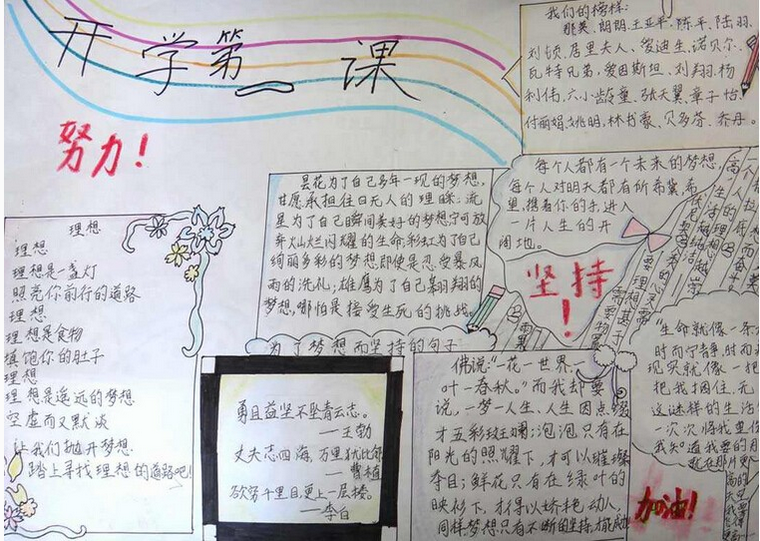 开学第一课
努力！
我们的榜样：
那英、朗朗、王亚平、陈平、陆羽、
刘欢、居里夫人、爱迪生、诺贝尔、
瓦特兄弟、爱因斯坦、刘翔、杨
利伟、六小龄童、张天翼、章子怡、
付丽娟、姚明、林书豪、贝多芬、乔丹。
理想
理想
理想是一盏灯
照亮你前行的道路
理想
理想是食物
填饱你的肚子
理想
理想是遥远的梦想
空虚而又默谈
让我们抛开梦想
踏上寻找理想的道路吧！
昙花为了自己多年一现的梦想，
甘愿承担往日无人的理睬；流
星为了自己瞬间美好的梦想宁可放
弃火灿烂闪耀的生命；彩虹为了自己
绚丽多彩的梦想即使是忍受暴风
雨的洗礼；雄鹰为了自己羽翔的
梦想，哪怕是接受生死的挑战。
为了梦想而坚持的句子
每个人都有一个未来的梦想，
每个人对明天都有所希冀，希
里，携着你的手，进入
一片人生的开
阔地。
坚持！
勇且益坚不坠青云志。
—王勃
丈夫志四海，万里犹比邻
—曹植
欲穷千里目，更上一层楼。
—李白
佛说：“一花一世界，一
叶一春秋。”而我却要
说，一梦一人生、人生因点缀
才五彩斑斓；泡泡只有在
阳光的照耀下，才可以璀璨
夺目；鲜花只有在绿叶的
映衬下，才得以娇艳动人，
同样梦想只有不断的坚持，
生命就像一条
时而宁静，时而
现实就像一把
把我捆住，无
这谜样的生活
一次次将我
我知道我要的
加油！